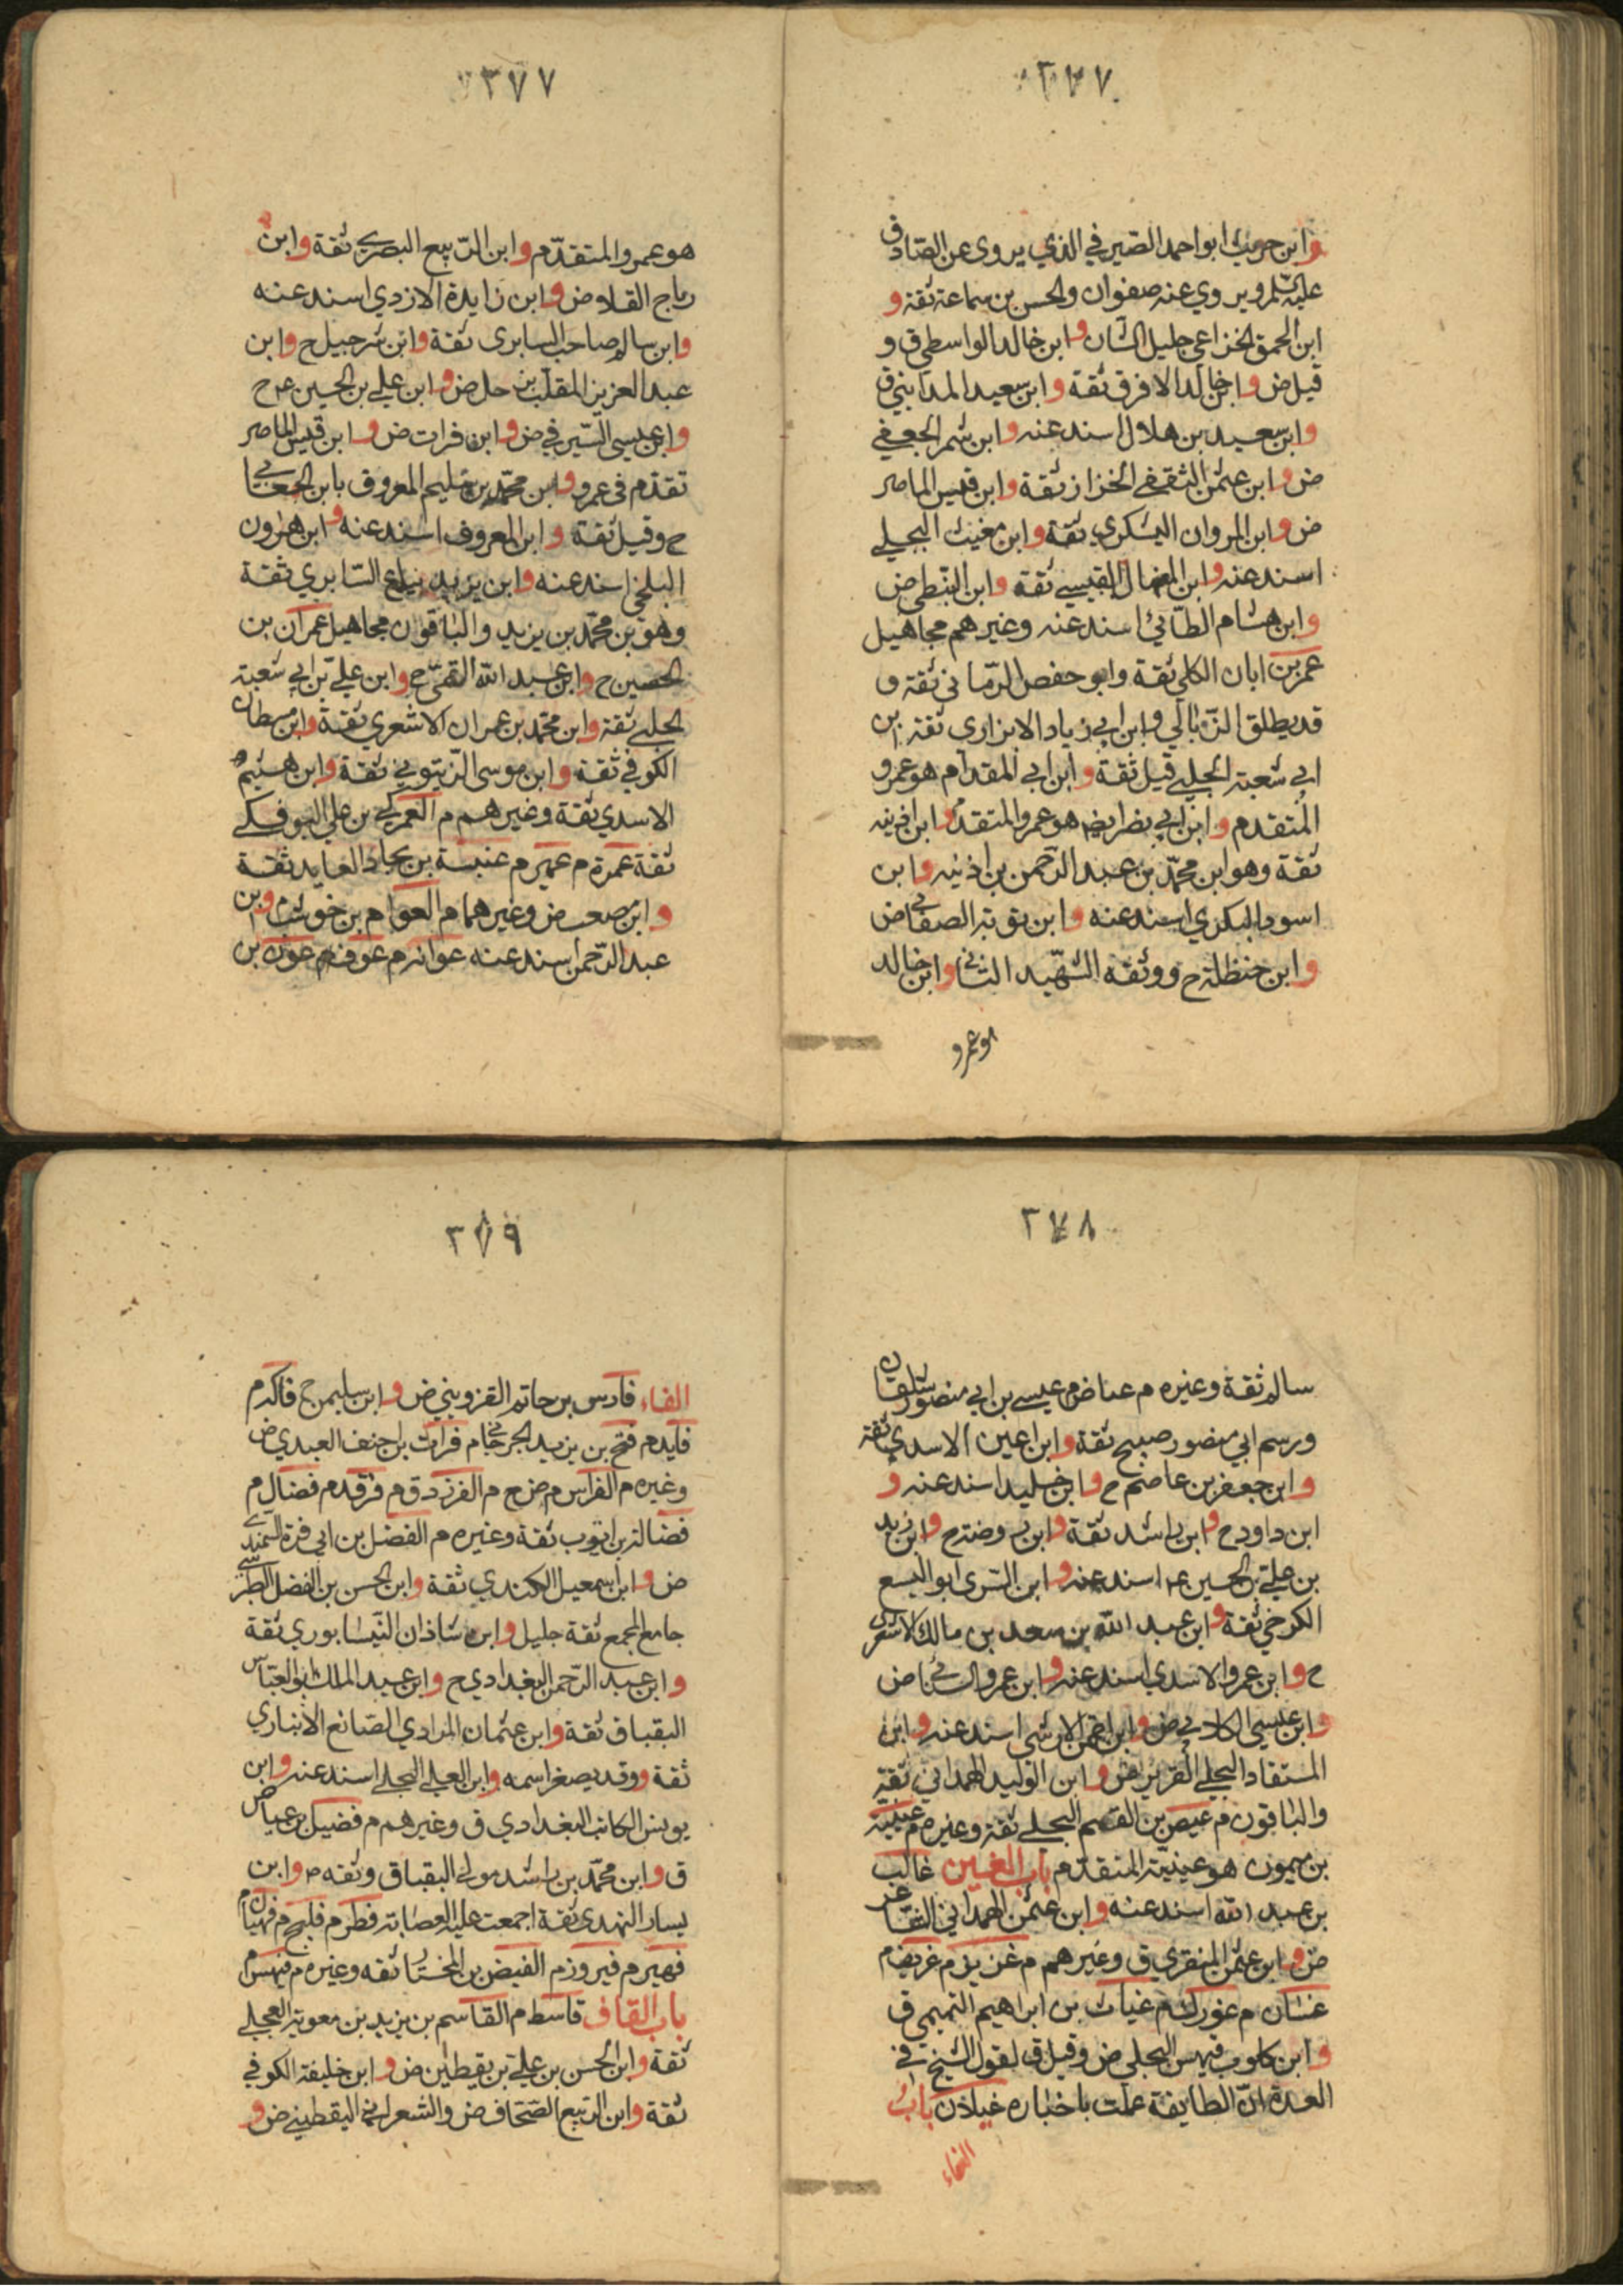 ٣٧٧
وابن حريث ابو احمد الصيرفي الذي يروى عن الصّادق
عليه السّلم ويروي عنه صفوان والحسن بن سماعة ثقة و
ابن الحمق الخزاعي جليل الشان وابن خالد الواسطي ق و
قيل ض وابن خالد الافرق ثقة وابن سعيد المدايني ق
وابن سعيد بن هلال اسند عنه وابن شمر الجعفي
ض وابن عثمن الثقفي الخزاز ثقة وابن قيس الماصر
ض وابن المروان اليشكري ثقة وابن مغيث البجلي
اسند عنه وابن المنهال القيسي ثقة وابن النبطي ض
وابن هشام الطائي اسند عنه وغيرهم مجاهيل
عمر بن ابان الكلبي ثقة وابو حفص الرّماني ثقة و
قد يطلق الزّبالي وابن ابي زياد الابزاري ثقة ابن
ابي شعبة الحلبي قيل ثقة وابن ابي المقدام هو عمرو
المُتقدم وابن ابي نصر ايضا هو عمرو المتقدم وابن اذينه
ثقة وهو ابن محمّد بن عبد الرّحمن بن اذينه وابن
اسود البكري اسند عنه وابن توبة الصنعاني ض
وابن حنظلة ح ووثقه الشّهيد الثاني وابن خالد
هو عمرو
٣٧٧
هو عمرو المتقدّم وابن الرّبيع البصري ثقة وابن
رباح القلا وض وابن زايدة الازدي اسند عنه
وابن سالم صاحب السابرى ثقة وابن شرحبيل ح وابن
عبد العزيز المقلب بزحل ض وابن علي بن الحسين عم ح
وابن عيسى السّيرفي ض وابن فرات ض وابن قيس الماصر
تقدم في عمرو وابن محمّد بن سليم المعروف بابن الجعابي
ح وقيل ثقة وابن المعروف اسند عنه وابن هرون
البلخي اسند عنه وابن يزيد بياع السّابري ثقة
وهو بن محمّد بن يزيد والباقون مجاهيل عمران بن
الحصين ح وابن عبد الله القمي ح وابن عليّ بن ابي شعبة
الحلبي ثقة وابن محمّد بن عمران الاشعري ثقة وابن مسطان
الكوفي ثقة وابن موسى الزّيتوني ثقة وابن هيثم
الاسدي ثقة وغيرهم م العمركي بن علي البوفكي
ثقة عمرة م عمير م عنبسة بن بجاد العابد ثقة
وابن مصعب ض وغيرهما م العوام بن حوشب م وبن
عبد الرّحمن اسند عنه عوانه م عوف م عون بن
٣٧٨
سالم ثقة وغيره م عياض م عيسى بن ابي منصور شلقان
ورسم ابي منصور صبيح ثقة وابن اعين الاسدي ثقة
وابن جعفر بن عاصم ح وابن خليد اسند عنه و
ابن داود ح وابن راشد ثقة وابن روضة ح وابن زيد
بن علي بن الحسين عم اسند عنه وابن السّرى ابو اليسع
الكرخي ثقة وابن عبد الله بن سعد بن مالك الاشعري
ح وابن عمرو الاسدي اسند عنه وابن عمرو الشيباني ض
وابن عيسى الكلابي ض وابن لقمن الارشى اسند عنه وابن
المستفاد البجلي الضرير ض وابن الوليد الهمداني ثقة
والباقون م عيص بن القسم البجلي ثقة وغيره م عيينة
بن ميمون هو عيينة المتقدّم باب الغين غالب
بن عبد الله اسند عنه وابن عثمن الهمداني الشاعر
ض وابن عثمن المنقري ق وغيرهم م غزيز م غريض م
غسّان م غورك م غياث بن ابراهيم التميمي ق
وابن كلوب فيهس البجلي ض وقيل ق لقول الشيخ في
العدة انّ الطايفة عملت باخباره غيلان باب
الفاء
٣٧٩
الفاء فارس بن حاتم القزويني ض وابن سليمن ح فاكه م
فايد م فتح بن يزيد الجرجاني م فرات بن احنف العبدي ض
وغيره م الفراس م ض ح م الفرزدق م فرقد م فضال م
فضالة بن ايّوب ثقة وغيره م الفضل بن ابي قرة السّمندي
ض وابن اسمعيل الكندي ثقة وابن الحسن بن الفضل الطبرسي
جامع المجمع ثقة جليل وابن شاذان النّيسابوري ثقة
وابن عبد الرّحمن البغدادي ح وابن عبد الملك ابو العبّاس
البقباق ثقة وابن عثمان المرادي الصّائغ الانباري
ثقة ووقد يصغر اسمه وابن العيلى البجلي اسند عنه وابن
يونس الكاتب البغدادي ق وغيرهم م فضيل بن عياض
ق وابن محمّد بن راشد مولى البقباق وثقه م وابن
يسار النهدي ثقة اجمعت عليه العصابة فطر م فليح م فهيان م
فهير م فيروز م الفيض بن المختار ثقه وغيره م فيهس م
باب القاف قاسط م القاسم بن بريد بن معوية العجلي
ثقة وابن الحسن بن عليّ بن يقطين ض وابن خليفة الكوفي
ثقة وابن الربيع الصّحاف ض والشعراني اليقطيني ض و